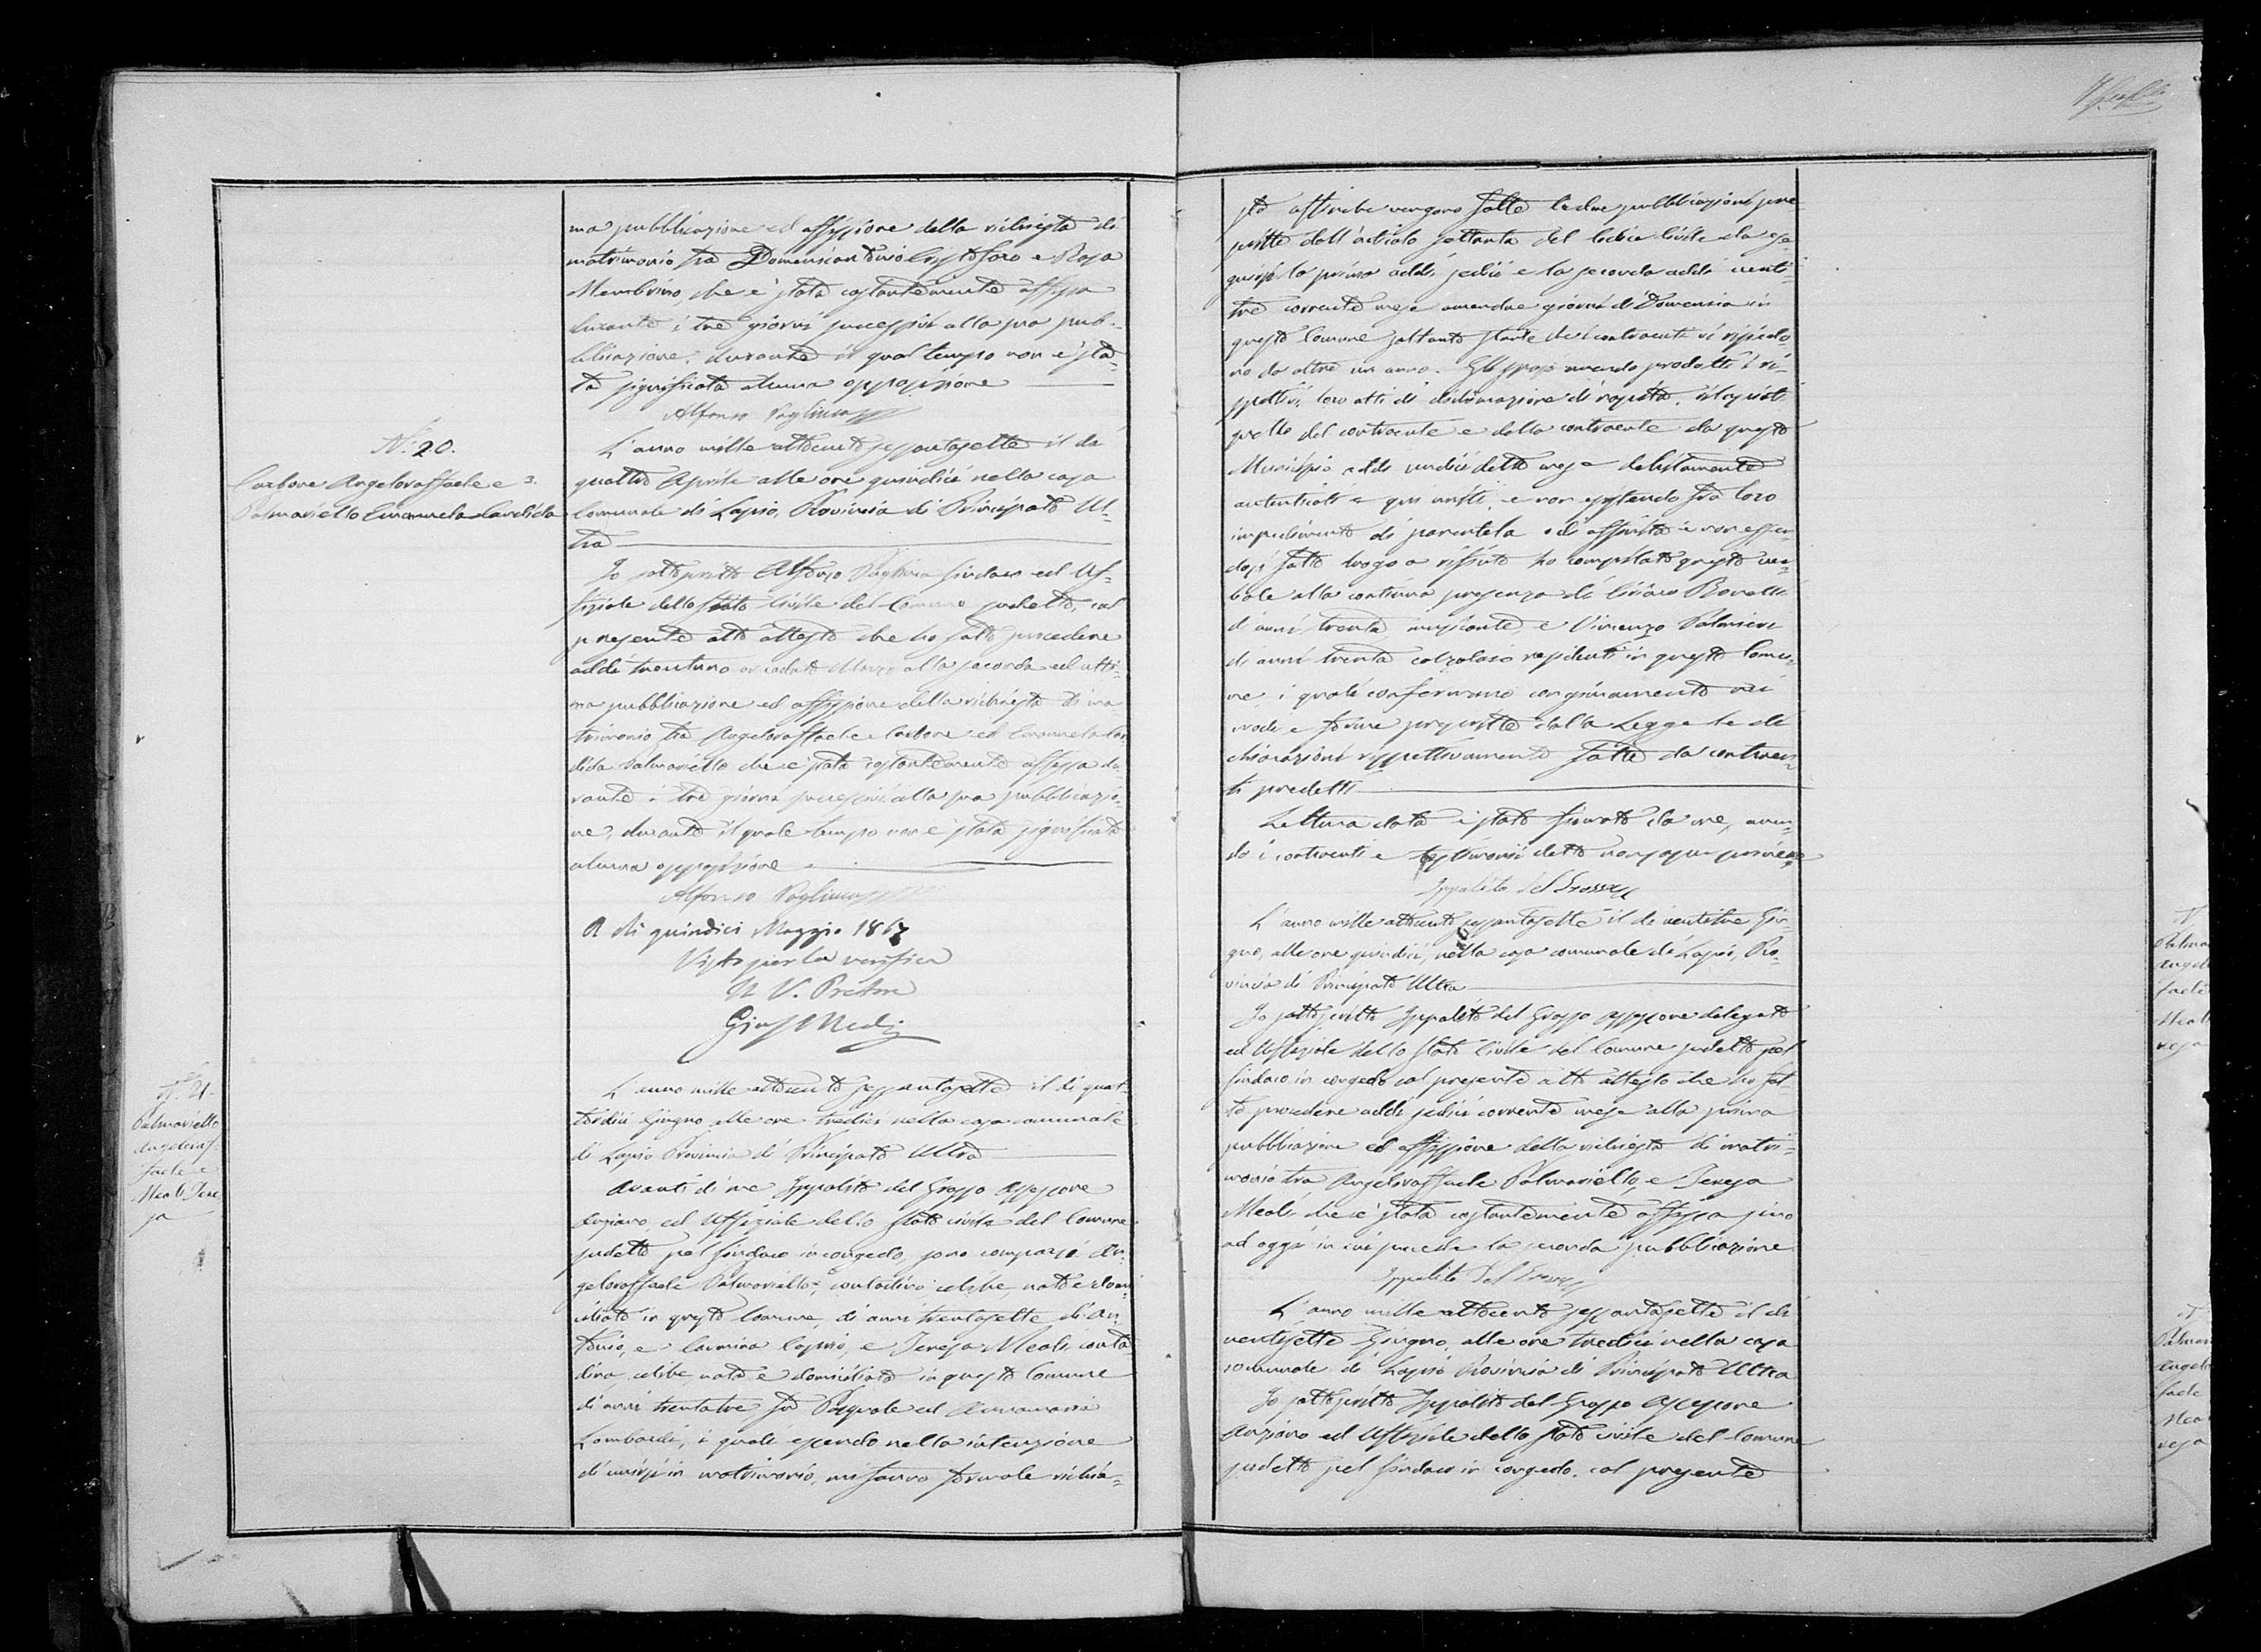 ma pubblicazione ed affissione della richiesta di
matrimonio tra Domenicantonio Cristofaro e Rosa
Membrino, che è stata costantemente affissa
durante i tre giorni successivi alla sua pub-
blicazione, durante il qual tempo non è sta-
ta significata alcuna opposizione
Alfonso Pagliuca
N.° 20.
Carbone Angeloraffaele e
Palmariello Emanuela Candida
L'anno mille ottocento sessantasette il dì
quattro Aprile alle ore quindici nella casa
Comunale di Lapio, Provincia di Principato Ul-
tra
Io sottoscritto Alfonso Pagliuca Sindaco ed Uf-
fiziale dello Stato Civile del Comune sudetto, col
presente atto attesto che ho fatto procedere
addì trentuno scaduto Marzo alla seconda ed ulti-
ma pubblicazione ed affissione della richiesta di ma-
trimonio tra Angeloraffaele Carbone ed Emanuela Can-
dida Palmariello che è stata costantemente affissa du-
rante i tre giorni successivi alla sua pubblicazio-
ne, durante il quale tempo non è stata significata
alcuna opposizione
Alfonso Pagliuca
A dì quindici Maggio 1867
Visto per la verifica
Il V. Pretore
N.° 21.
Palmariello
Angeloraf-
faele e
Meoli Tere
sa
L'anno mille ottocento sessantasette il dì quat-
tordici Giugno alle ore tredici nella casa comunale
di Lapio Provincia di Principato Ultra
Avanti di me Ippolito del Grosso Assessore
Anziano ed Uffiziale dello Stato civile del Comune
sudetto pel Sindaco in congedo, sono comparsi An-
geloraffaele Palmariello, contadino celibe, nato e domi-
ciliato in questo Comune, di anni trentasette di An-
tonio, e Carmina Caprio, e Teresa Meoli conta-
dina, celibe nata e domiciliata in questo Comune
di anni trentatre fu Pasquale ed Annamaria
Lombardi, i quali essendo nella intenzione
di unirsi in matrimonio, mi fanno formale richie-
sta affinche vengano fatte le due pubblicazioni pre-
scritte dall'articolo settanta del Codice Civile da ese-
guirsi la prima addì sedici e la seconda addì venti-
tre corrente mese amendue giorni di Domenica in
questo Comune soltanto stante che i contraenti vi risiedo-
no da oltre un anno. Gli sposi avendo prodotti i ri-
spettivi loro atti di dichiarazione di nascita, rilasciati
quello del contraente e della contraente da questo
Municipio addì undici detto mese debitamente
autenticati e qui uniti, e non esistendo fra loro
impedimento di parentela o di affinità e non essen-
dosi fatto luogo a rifiuto ho compilato questo ver-
bale alla continua presenza di Ciriaco Romelli
d'anni trenta, musicante, e Vincenzo Palmieri
di anni trenta calzolaio residenti in questo Comu-
ne, i quali confermano con giuramento nei
modi e forme prescritte dalla Legge le di-
chiarazioni rispettivamente fatte da contraen-
ti predetti
Lettura data è stato firmato da me, aven-
do i contraenti e testimoni detto non sapere scrivere
Ippolito Del Grosso
L'anno mille ottocento sessantasette il dì ventitre Giu-
gno, alle ore quindici, nella casa comunale di Lapio, Pro-
vincia di Principato Ultra
Io sottoscritto Ippolito del Grosso Assessore delegato
ed Uffiziale dello Stato Civile del Comune sudetto pel
Sindaco in congedo col presente atto attesto che ho fat-
to procedere addì sedici corrente mese alla prima
pubblicazione ed affissione della richiesta di matri-
monio tra Angeloraffaele Palmariello, e Teresa
Meoli che è stata costantemente affissa sino
ad oggi in cui succede la seconda pubblicazione
Ippolito Del Grosso
L'anno mille ottocento sessantasette il dì
ventisette Giugno, alle ore tredici nella casa
comunale di Lapio Provincia di Principato Ultra
Io sottoscritto Ippolito del Grosso Assessore
Anziano ed Uffiziale dello Stato civile del Comune
sudetto pel Sindaco in congedo, col presente